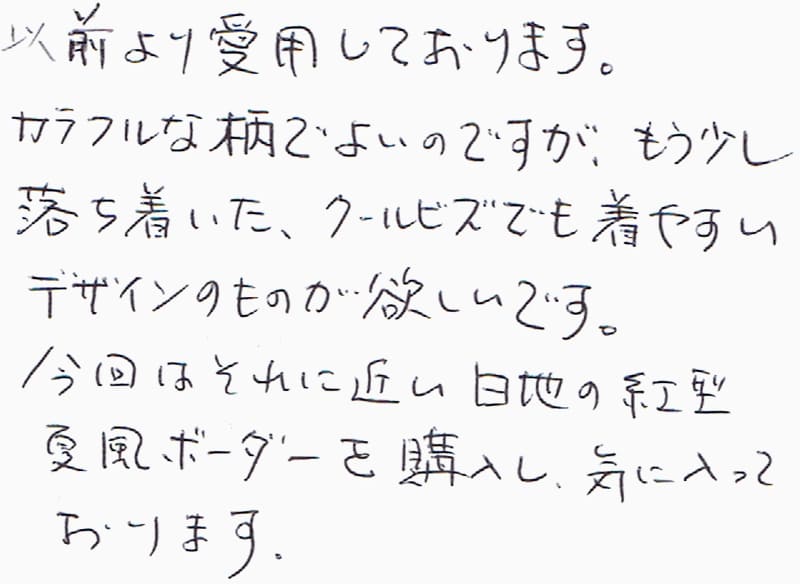 以前より愛用しております。
カラフルな柄でよいのですが、もう少し
落ち着いた、クールビズでも着やすい
デザインのものが欲しいです。
今回はそれに近い白地の紅型
夏風ボーダーを購入し、気に入って
おります。